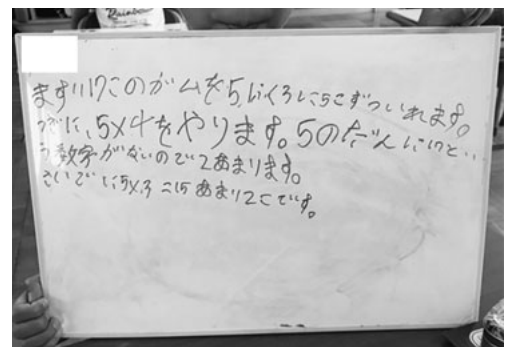 Rainbow
まず!!17このガムを5ふくろに5こずついれます。
つぎに、5×4をやります。5のだんに17と
う数字がないので2あまります。
さいごに5×3=15あまり2こです。